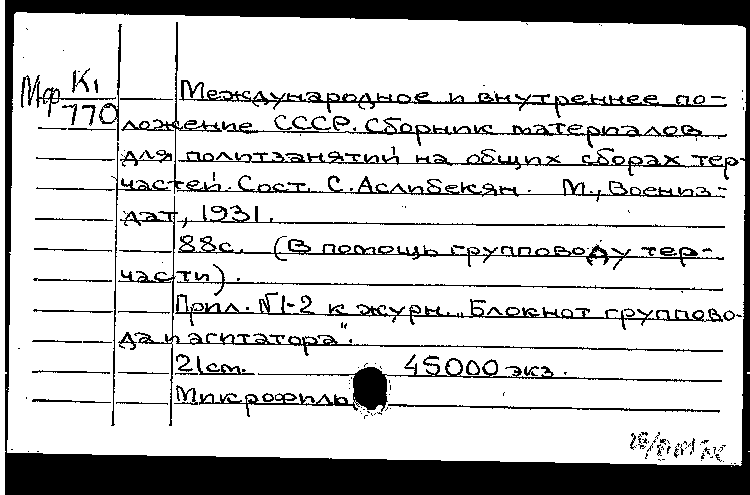 Мф К1
770
Международное и внутреннее по-
ложение СССР. Сборник материалов
для политзанятий на общих сборах тер-
частей. Сост. С. Аслибекян. М., Воениз-
дат, 1931.
88с. (В помощь групповоду тер-
части).
Прил. №1-2 к журн. „Блокнот группово-
да и агитатора".
21 cm. 45000 экз.
Микрофильм